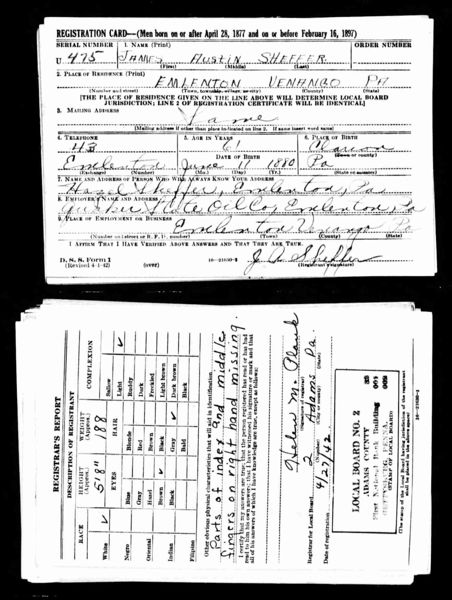 REGISTRATION CARD—(Men born on or after April 28, 1877 and on or before February 16, 1897)
SERIAL NUMBER 1. NAME (Print) ORDER NUMBER
U 475 JAMES AUSTIN SHEFFER
(First) (Middle) (Last)
2. PLACE OF RESIDENCE (Print)
EMLENTON VENANGO PA
(Number and street) (Town, township, village, or city) (County) (State)
[THE PLACE OF RESIDENCE GIVEN ON THE LINE ABOVE WILL DETERMINE LOCAL BOARD
JURISDICTION; LINE 2 OF REGISTRATION CERTIFICATE WILL BE IDENTICAL]
3. MAILING ADDRESS
Same
[Mailing address if other than place indicated on line 2. If same insert word same]
4. TELEPHONE 5. AGE IN YEARS 6. PLACE OF BIRTH
113 61 Clarion
(Town or county)
DATE OF BIRTH
Emlenton June 11 1880 Pa
(Exchange) (Number) (Mo.) (Day) (Yr.) (State or country)
7. NAME AND ADDRESS OF PERSON WHO WILL ALWAYS KNOW YOUR ADDRESS
Hazel Sheffer, Emlenton, Pa
8. EMPLOYER'S NAME AND ADDRESS
Quaker State Oil Co, Emlenton, Pa
9. PLACE OF EMPLOYMENT OR BUSINESS
Emlenton Venango Pa
(Number and street or R. F. D. number) (Town) (County) (State)
I AFFIRM THAT I HAVE VERIFIED ABOVE ANSWERS AND THAT THEY ARE TRUE.
D. S. S. Form 1
(Revised 4-1-42) (over) 16-21630-2
J. A. Sheffer
(Registrant's signature)
REGISTRAR'S REPORT
DESCRIPTION OF REGISTRANT
RACE HEIGHT (Approx.) WEIGHT (Approx.) COMPLEXION
5'8" 188
EYES HAIR
White ✓
Negro
Oriental
Indian
Filipino
Blue
Gray
Hazel
Brown ✓
Black
Blonde
Red
Brown
Black
Gray ✓
Bald
Sallow
Light ✓
Ruddy
Dark
Freckled
Light brown
Dark brown
Black
Other obvious physical characteristics that will aid in identification
Parts of index and middle
fingers on right hand missing.
I certify that my answers are true; that the person registered has read or has had
read to him his own answers; that I have witnessed his signature or mark and that
all of his answers of which I have knowledge are true, except as follows:
Helen M. Plank
(Signature of registrar)
Registrar for Local Board 2 Adams Pa.
(Number) (City or county) (State)
Date of registration 4/27/42
LOCAL BOARD NO. 2
ADAMS COUNTY
First National Bank Building
GETTYSBURG, PENNA.
(STAMP OF LOCAL BOARD)
(The stamp of the Local Board having jurisdiction of the registrant
shall be placed in the above space)